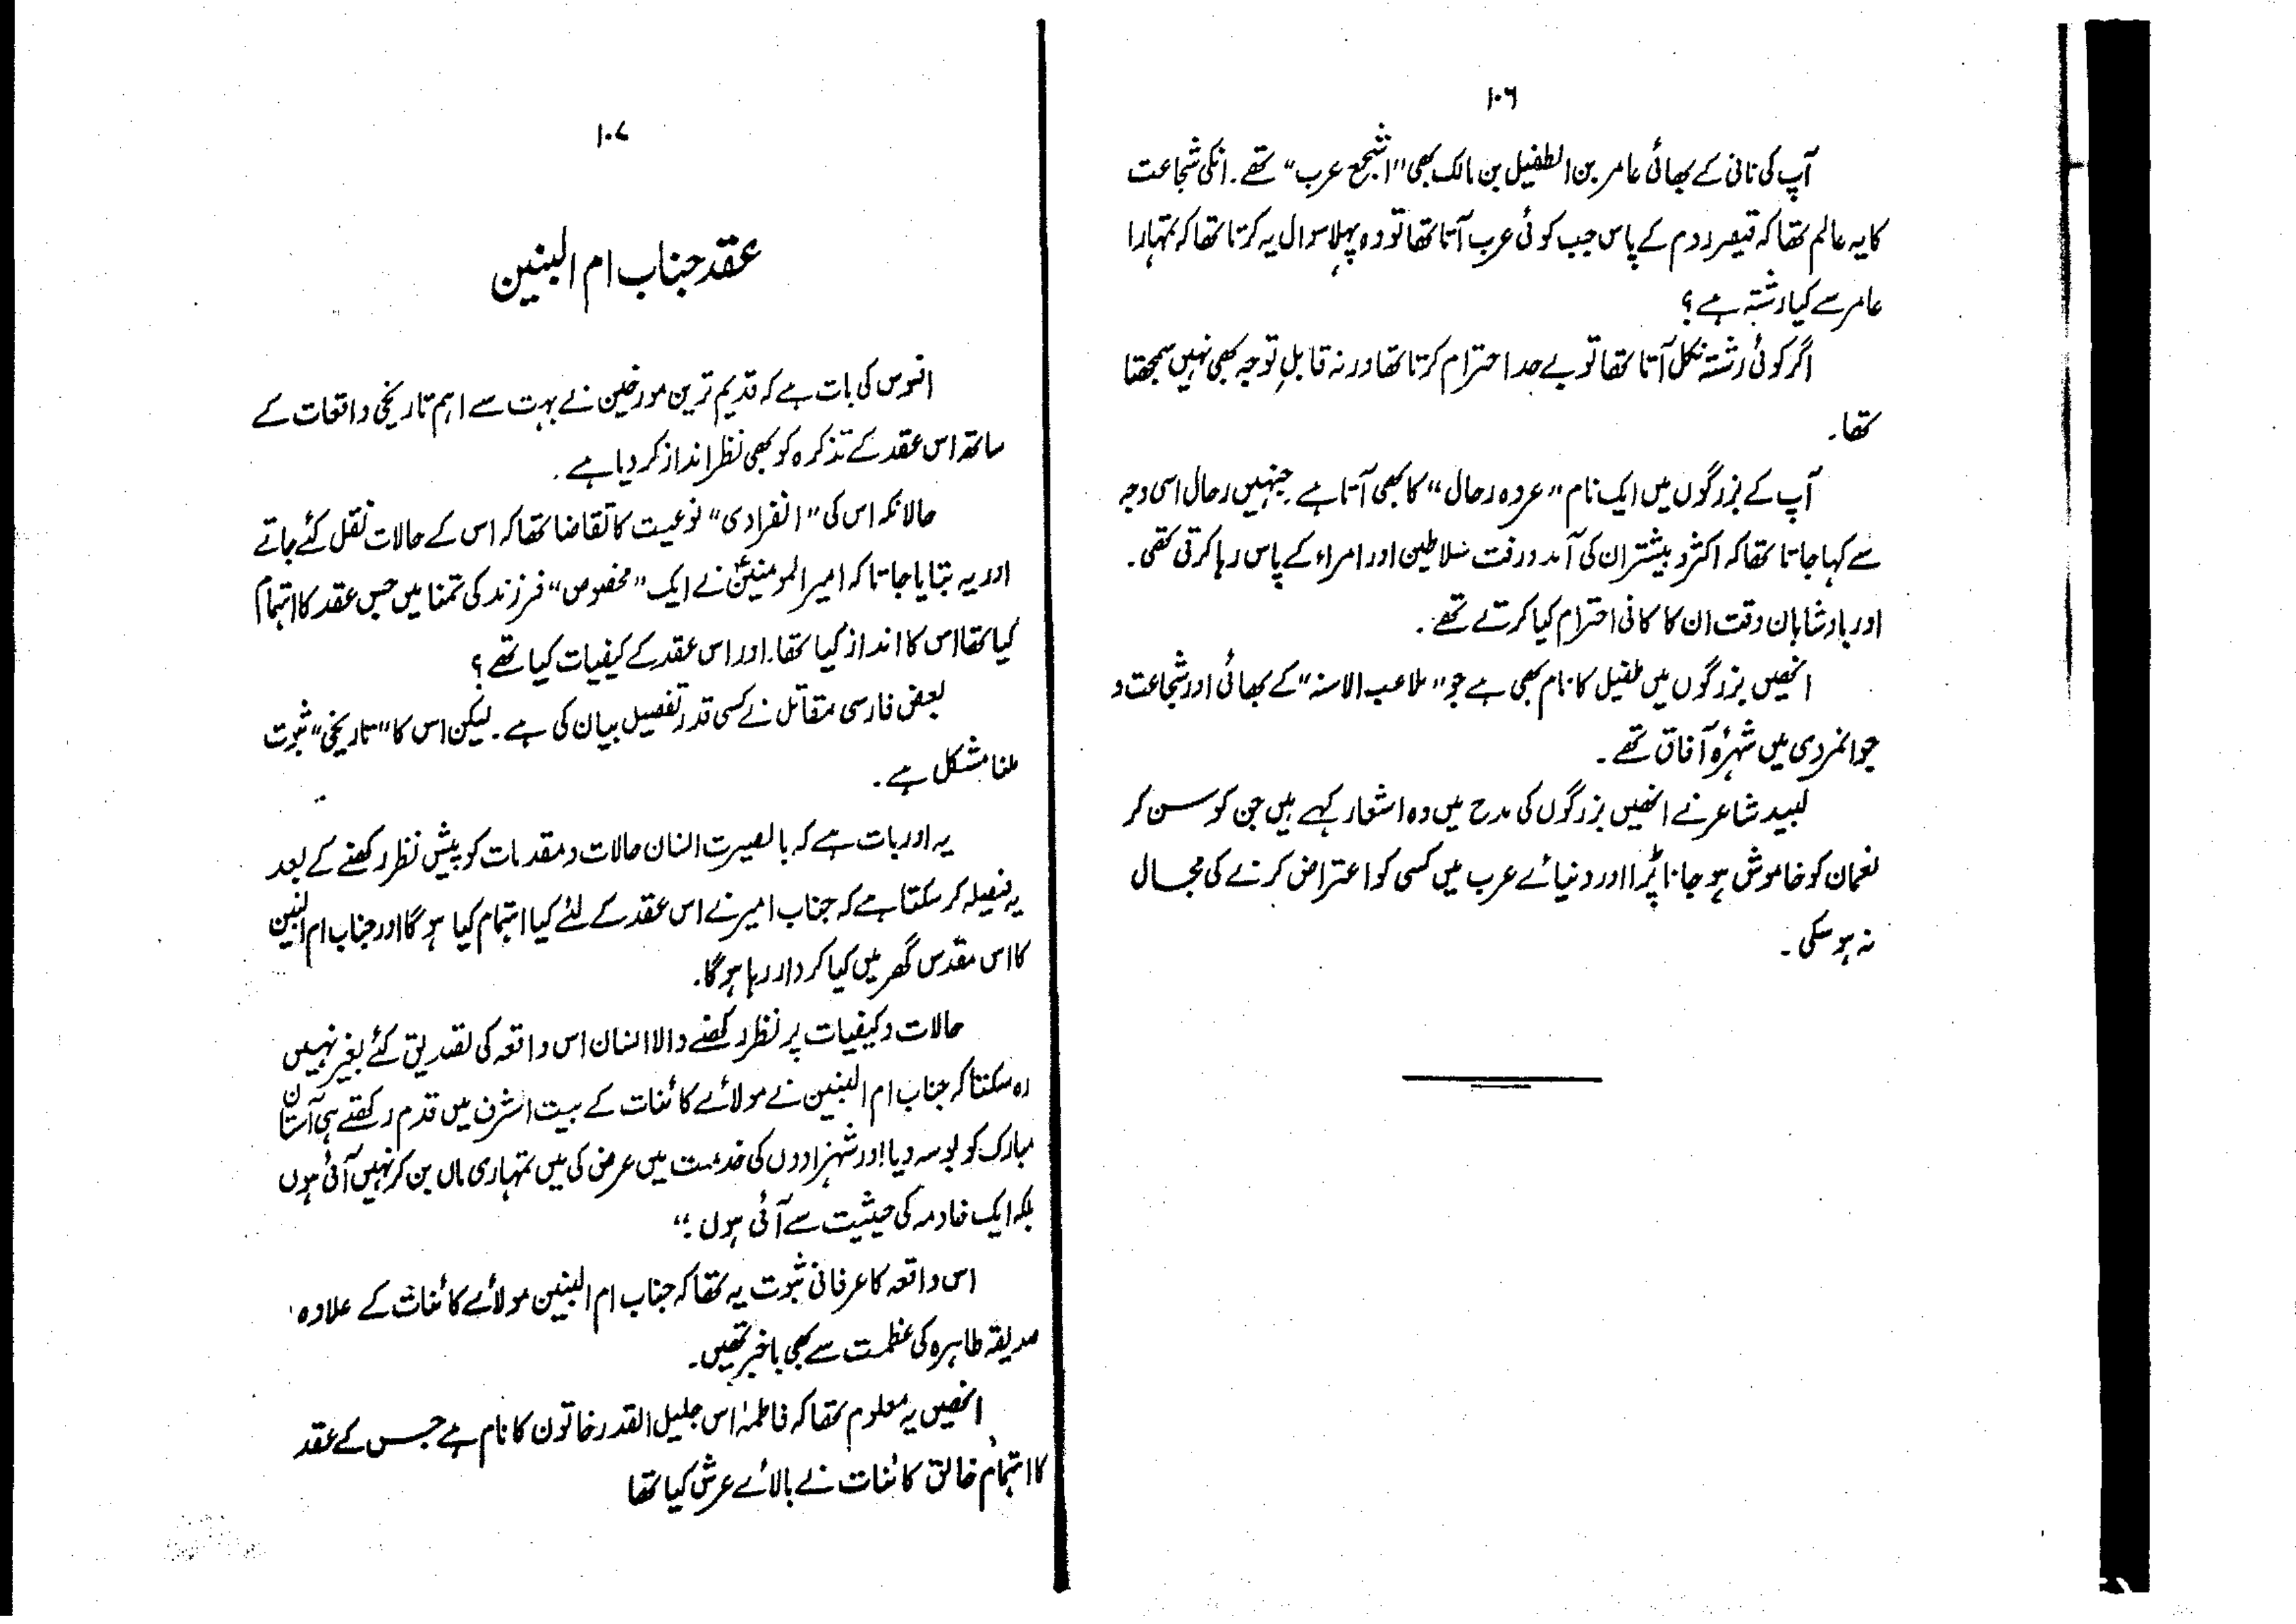 ۱۰۶
آپ کی نانی کے بھائی عامر بن الطفیل بن مالک بھی "اشجع عرب" تھے۔ انکی شجاعت
کا یہ عالم تھا کہ قیصر روم کے پاس جب کوئی عرب آتا تھا تو وہ پہلا سوال یہ کرتا تھا کہ تمہارا
عامر سے کیا رشتہ ہے؟
اگر کوئی رشتہ نکل آتا تھا تو بے حد احترام کرتا تھا ورنہ قابلِ توجہ بھی نہیں سمجھتا
تھا۔
آپ کے بزرگوں میں ایک نام "عروہ رحال" کا بھی آتا ہے جنہیں رحال اسی وجہ
سے کہا جاتا تھا کہ اکثر و بیشتر ان کی آمد و رفت سلاطین اور امراء کے پاس رہا کرتی تھی۔
اور بادشاہان وقت ان کا کافی احترام کیا کرتے تھے۔
انھیں بزرگوں میں طفیل کا نام بھی ہے جو "ملاعب الاسنہ" کے بھائی اور شجاعت و
جوانمردی میں شہرۂ آفاق تھے۔
لبید شاعر نے انھیں بزرگوں کی مدح میں وہ اشعار کہے ہیں جن کو سن کر
نعمان کو خاموش ہو جانا پڑا اور دنیائے عرب میں کسی کو اعتراض کرنے کی مجال
نہ ہو سکی۔
۱۰۷
عقد جناب ام البنین
افسوس کی بات ہے کہ قدیم ترین مورخین نے بہت سے اہم تاریخی واقعات کے
ساتھ اس عقد کے تذکرہ کو بھی نظر انداز کر دیا ہے۔
حالانکہ اس کی "انفرادی" نوعیت کا تقاضا تھا کہ اس کے حالات نقل کئے جاتے
اور یہ بتایا جاتا کہ امیر المومنینؑ نے ایک "مخصوص" فرزند کی تمنا میں جس عقد کا اہتمام
کیا تھا اس کا انداز کیا تھا۔ اور اس عقد کے کیفیات کیا تھے؟
بعض فارسی مقاتل نے کسی قدر تفصیل بیان کی ہے۔ لیکن اس کا "تاریخی" ثبوت
ملنا مشکل ہے۔
یہ اور بات ہے کہ بابصیرت انسان حالات و مقدمات کو پیش نظر رکھنے کے بعد
یہ فیصلہ کر سکتا ہے کہ جناب امیر نے اس عقد کے لئے کیا اہتمام کیا ہو گا اور جناب ام البنین
کا اس مقدس گھر میں کیا کردار رہا ہو گا۔
حالات و کیفیات پر نظر رکھنے والا انسان اس واقعہ کی تصدیق کئے بغیر نہیں
رہ سکتا کہ جناب ام البنین نے مولائے کائنات کے بیت الشرف میں قدم رکھتے ہی آستان
مبارک کو بوسہ دیا اور شہزادوں کی خدمت میں عرض کی میں تمہاری ماں بن کر نہیں آئی ہوں
بلکہ ایک خادمہ کی حیثیت سے آئی ہوں۔"
اس واقعہ کا عرفانی ثبوت یہ تھا کہ جناب ام البنین مولائے کائنات کے علاوہ
صدیقہ طاہرہ کی عظمت سے بھی باخبر تھیں۔
انھیں یہ معلوم تھا کہ فاطمہؑ اس جلیل القدر خاتون کا نام ہے جس کے عقد
کا اہتمام خالق کائنات نے بالائے عرش کیا تھا